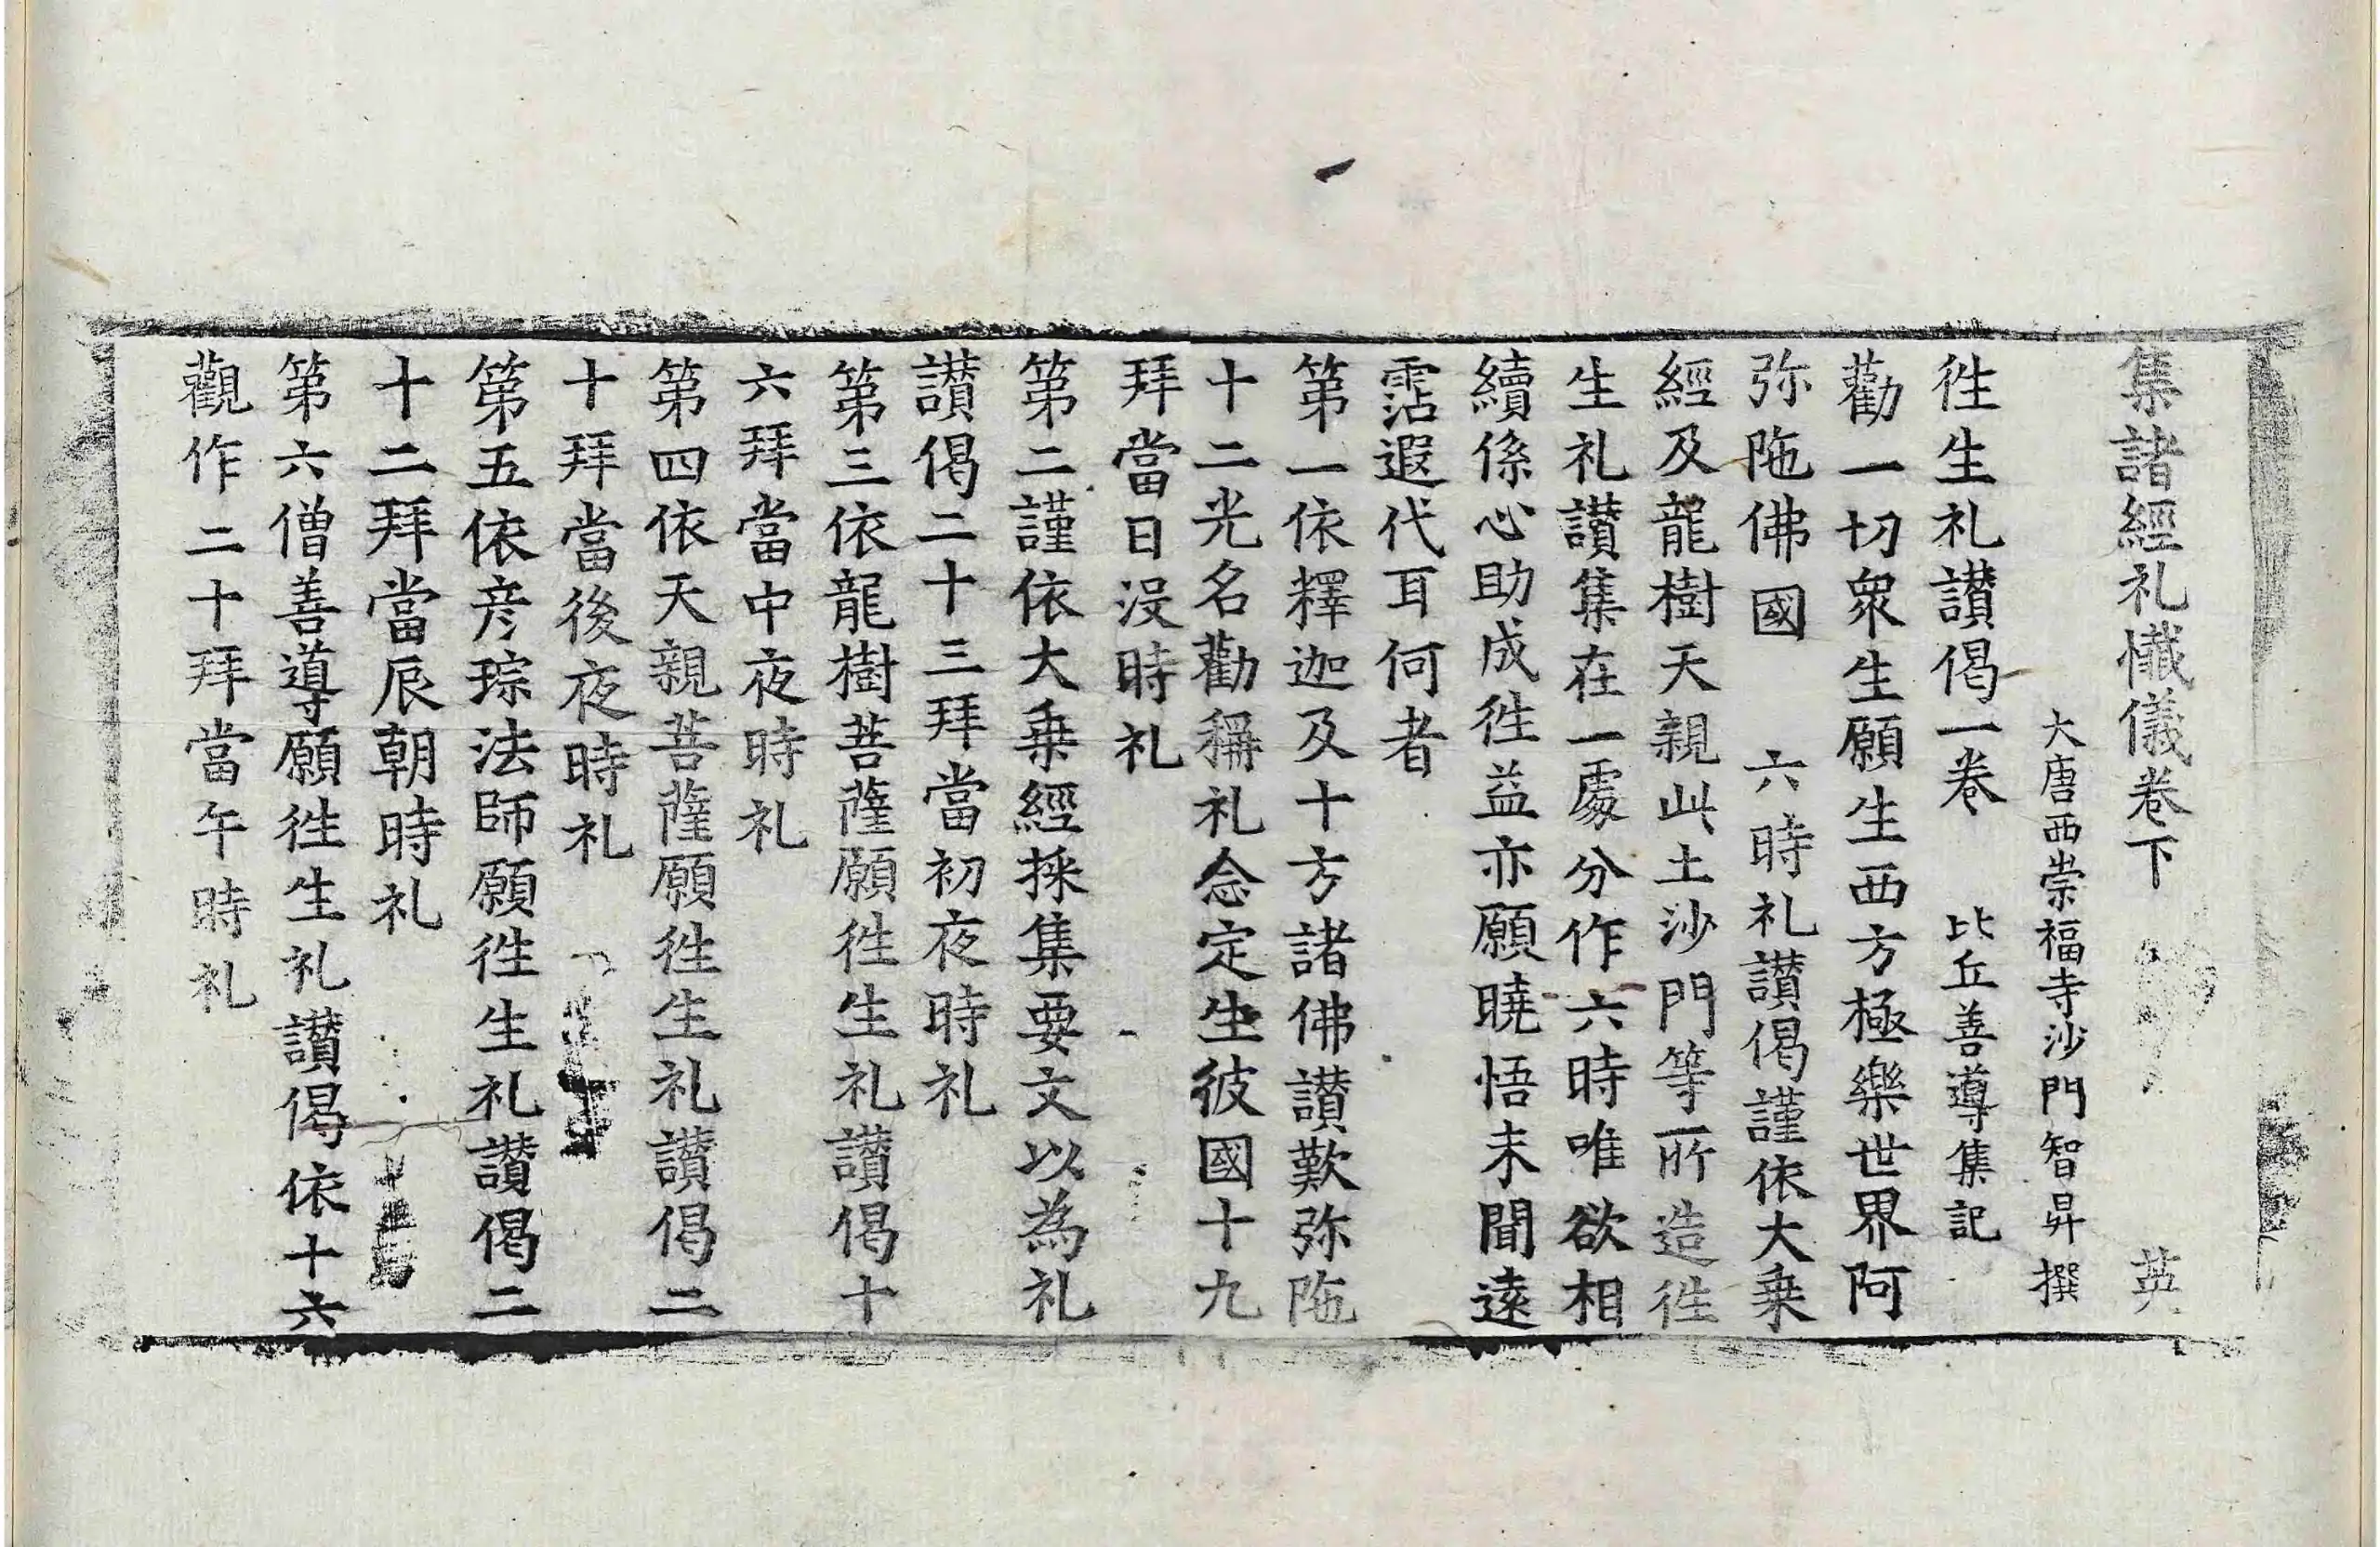 集諸經礼懴儀卷下 英
大唐西崇福寺沙門智昇撰
徃生礼讃偈一卷 比丘善導集記
勸一切衆生願生西方極樂世界阿
弥陁佛國 六時礼讃偈謹依大乗
經及龍樹天親此土沙門等所造徃
生礼讃集在一處分作六時唯欲相
續係心助成徃益亦願曉悟未聞遠
霑遐代耳何者
第一依釋迦及十方諸佛讃歎弥陁
十二光名勸稱礼念定生彼國十九
拜當日没時礼
第二謹依大乗經採集要文以為礼
讃偈二十三拜當初夜時礼
第三依龍樹菩薩願徃生礼讃偈十
六拜當中夜時礼
第四依天親菩薩願徃生礼讃偈二
十拜當後夜時礼
第五依彦琮法師願徃生礼讃偈二
十二拜當辰朝時礼
第六僧善導願徃生礼讃偈依十六
觀作二十拜當午時礼